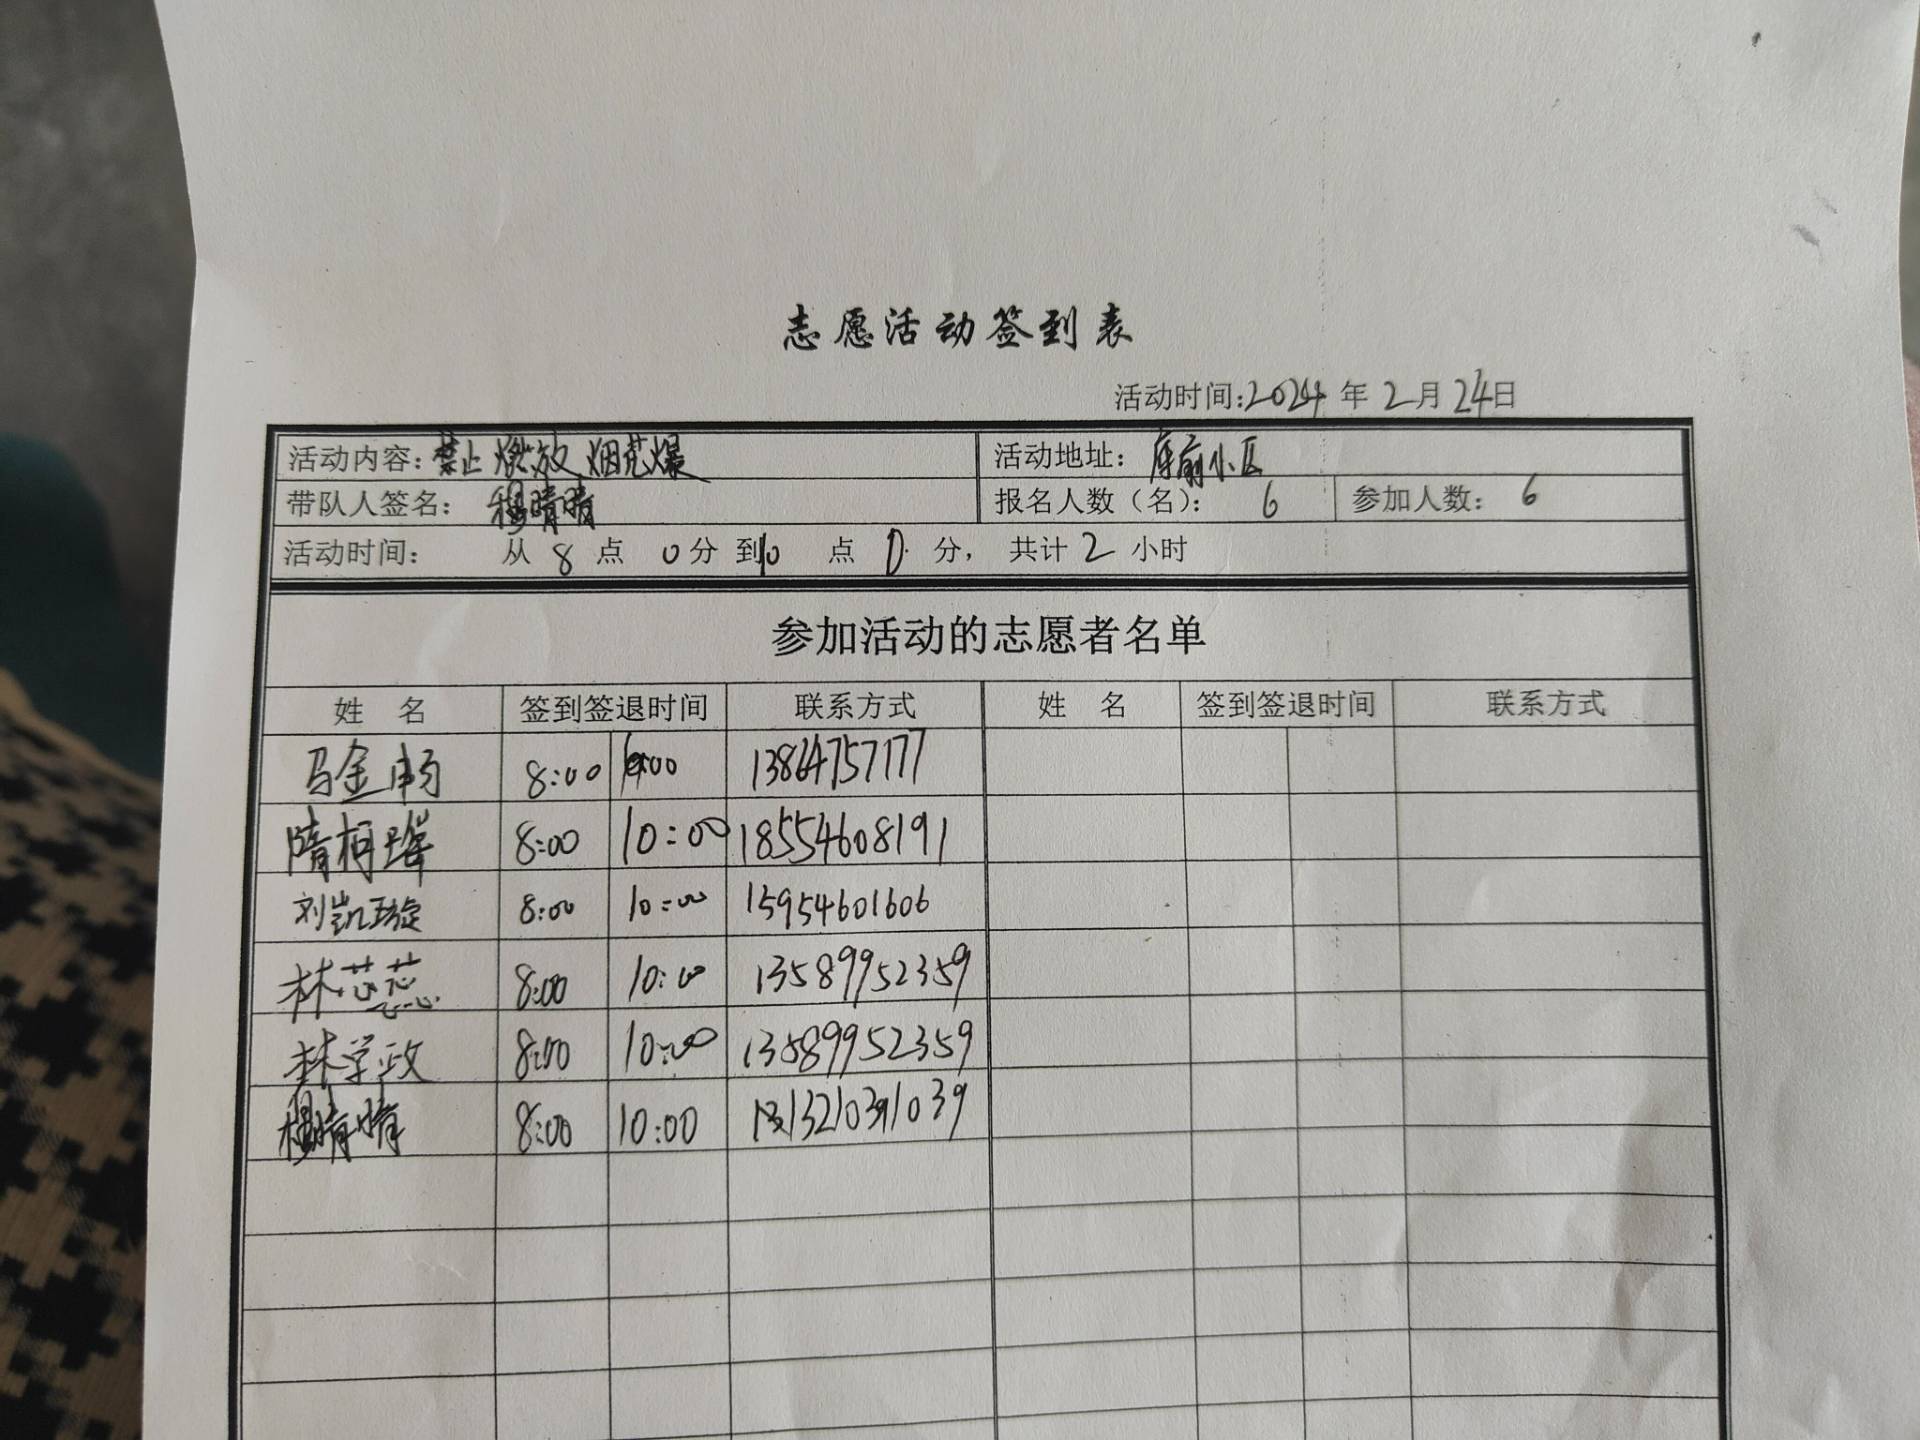 志愿活动签到表
活动时间:2024年2月24日
活动内容:禁止燃放烟花爆 活动地址:库前小区
带队人签名:穆晴晴 报名人数(名):6 参加人数:6
活动时间: 从8点0分到10点0分,共计2小时
参加活动的志愿者名单
姓 名 签到签退时间 联系方式 姓 名 签到签退时间 联系方式
马金畅 8:00 13864757177
隋栢璀 8:00 10:00 18554608191
刘凯璇 8:00 10:00 15954601606
林芯蕊 8:00 10:00 13589952359
林学政 8:00 10:00 13589952359
穆晴晴 8:00 10:00